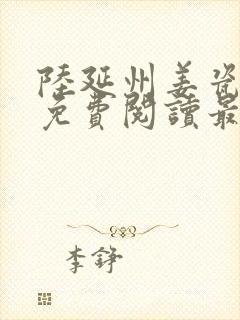 陸延州姜瓷
免費閱讀最
李錚